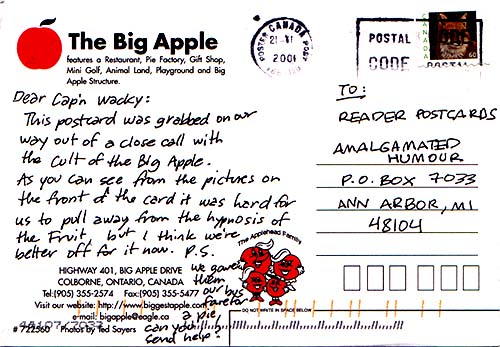 The Big Apple
features a Restaurant, Pie Factory, Gift Shop,
Mini Golf, Animal Land, Playground and Big
Apple Structure.
Dear Cap'n Wacky:
This postcard was grabbed on our
way out of a close call with
the Cult of the Big Apple.
As you can see from the pictures on
the front of the card it was hard for
us to pull away from the hypnosis of
the Fruit, but I think we're
better off for it now. P.S.
we gave
them
our bus
fare for
a pie,
can you
send help?
The Applehead Family
HIGHWAY 401, BIG APPLE DRIVE
COLBORNE, ONTARIO, CANADA
Tel:(905) 355-2574 Fax:(905) 355-5477
Visit our website: http://www.biggestapple.com
e-mail: bigapple@eagle.ca
# 722560 Photos by Ted Sayers
48107 7033
DO NOT WRITE IN SPACE BELOW
CANADA
POSTER POST
21 VI
2001
POSTAL
CODE
POSTAL
CODE
CANADA
60
TO:
READER POSTCARDS
AMALGAMATED
HUMOUR
P.O. BOX 7033
ANN ARBOR, MI
48104